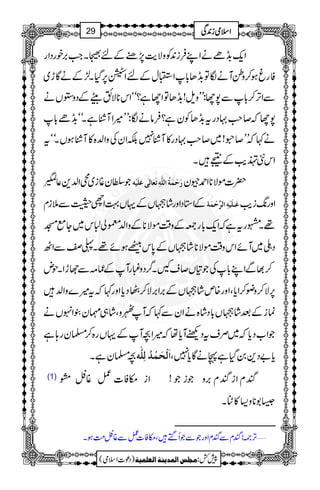 اسلامی زندگی
29
ایک بڈھے نے اپنے فرزند کو ولایت پڑھنے کے لئے بھیجا۔ جب برخوردار
فارغ ہو کر وطن آنے لگا تو بڈھا باپ استقبال کے لئے اسٹیشن پر گیا۔ لڑکے نے گاڑی
سے اتر کر باپ سے پوچھا: "ویل! بڈھا تو اچھا ہے؟" اس نالائق بیٹے کے دوستوں نے
پوچھا کہ صاحب بہادر یہ بڈھا کون ہے؟ فرمانے لگے: "میرا آشنا ہے۔" بڈھے باپ
نے کہا کہ "صاحبو! میں صاحب بہادر کا آشنا نہیں بلکہ ان کی والدہ کا آشنا ہوں"۔ یہ
اس نئی تہذیب کے نتیجے ہیں۔
حضرت مولانا احمد جیون رَحْمَةُ اللهِ تَعَالٰی عَلَيْهِ جو سلطان غازی محی الدین عالمگیر
اورنگ زیب عَلَيْهِ الرَّحْمَة کے استاد اور شاہجہاں کے یہاں بہت اچھی حیثیت سے ملازم
تھے۔ مشہور یہ ہے کہ ایک بار جمعہ کے وقت مولانا کے والد معمولی لباس میں جامع مسجد
دہلی میں آئے اس وقت مولانا شاہجہاں کے پاس بیٹھے ہوئے تھے۔ پہلی صف سے اٹھ
کر بھاگے اپنے باپ کی جوتیاں صاف کیں۔ گرد و غبار آپ کے عمامہ سے جھاڑا۔ حوض
پر لا کر وضو کرایا، اور خاص شاہجہاں کے برابر لا کر بٹھا دیا اور کہا کہ یہ میرے والد ہیں
نماز کے بعد شاہجہاں بادشاہ نے ان سے کہا کہ آپ ٹھہرو، شاہی مہمان بنو، انہوں نے
جواب دیا کہ میں صرف یہ دیکھنے آیا تھا کہ میرا بچہ آپ کے یہاں رہ کر مسلمان رہا ہے
یا بے دین بن گیا ہے پہچانے گا یا نہیں، اَلْحَمْدُ لِلّٰه بچہ مسلمان ہے۔
گندم از گندم بروید جو ز جو! از مکافات عمل غافل مشو (1)
جیسا بونا ویسا کاٹنا۔
1 ...... ترجمہ: گندم سے گندم اور جو سے جو اُگتے ہیں، مکافات عمل سے غافل مت ہو۔
پیش کش: مجلس المدینۃ العلمیۃ (دعوت اسلامی)